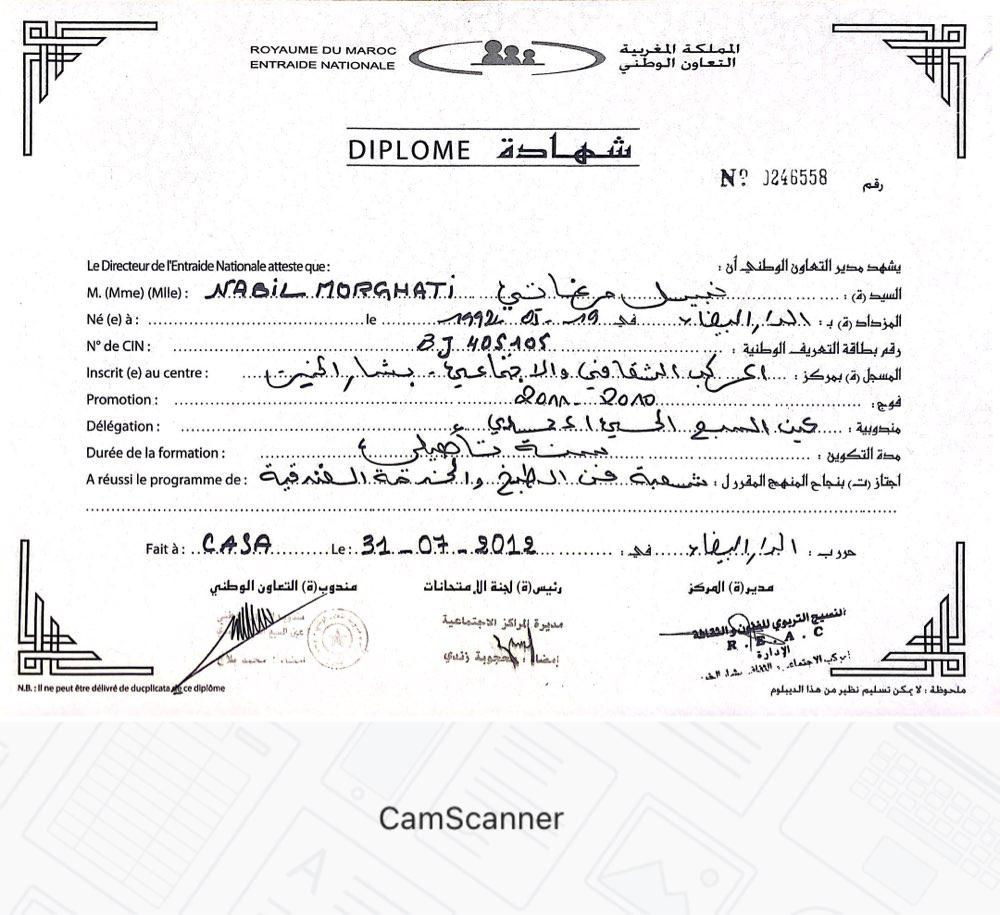 ROYAUME DU MAROC المملكة المغربية
ENTRAIDE NATIONALE التعاون الوطني
DIPLOME شهادة
Nº 0246558 رقم
Le Directeur de l'Entraide Nationale atteste que : يشهد مدير التعاون الوطني أن :
M. (Mme) (Mlle) : NABiL MORGHATi نبيل مرغاتي السيد (ة) :
Né (e) à : le 1992 - 01 - 19 في الدار البيضاء المزداد (ة) بـ :
N° de CIN : BJ 405105 رقم بطاقة التعريف الوطنية :
Inscrit (e) au centre : المركب الثقافي والاجتماعي - بشار الخير المسجل (ة) بمركز :
Promotion : 2011 - 2010 فوج :
Délégation : عين السبع الحي المحمدي مندوبية :
Durée de la formation : سنة تأهيلي مدة التكوين :
A réussi le programme de : شعبة فن الطبخ والخدمة الفندقية اجتاز (ت) بنجاح المنهج المقرر ل :
Fait à : CASA Le : 31 - 07 - 2012 في : الدار البيضاء حرر ب :
مندوب(ة) التعاون الوطني رئيس(ة) لجنة الإمتحانات مدير(ة) المركز
النسيج التربوي للفنون والثقافة
R.E.A.C
الإدارة
مديرة المراكز الاجتماعية
إمضاء : محجوبة زندي
N.B. : Il ne peut être délivré de ducplicata de ce diplôme ملحوظة : لا يمكن تسليم نظير من هذا الديبلوم
CamScanner